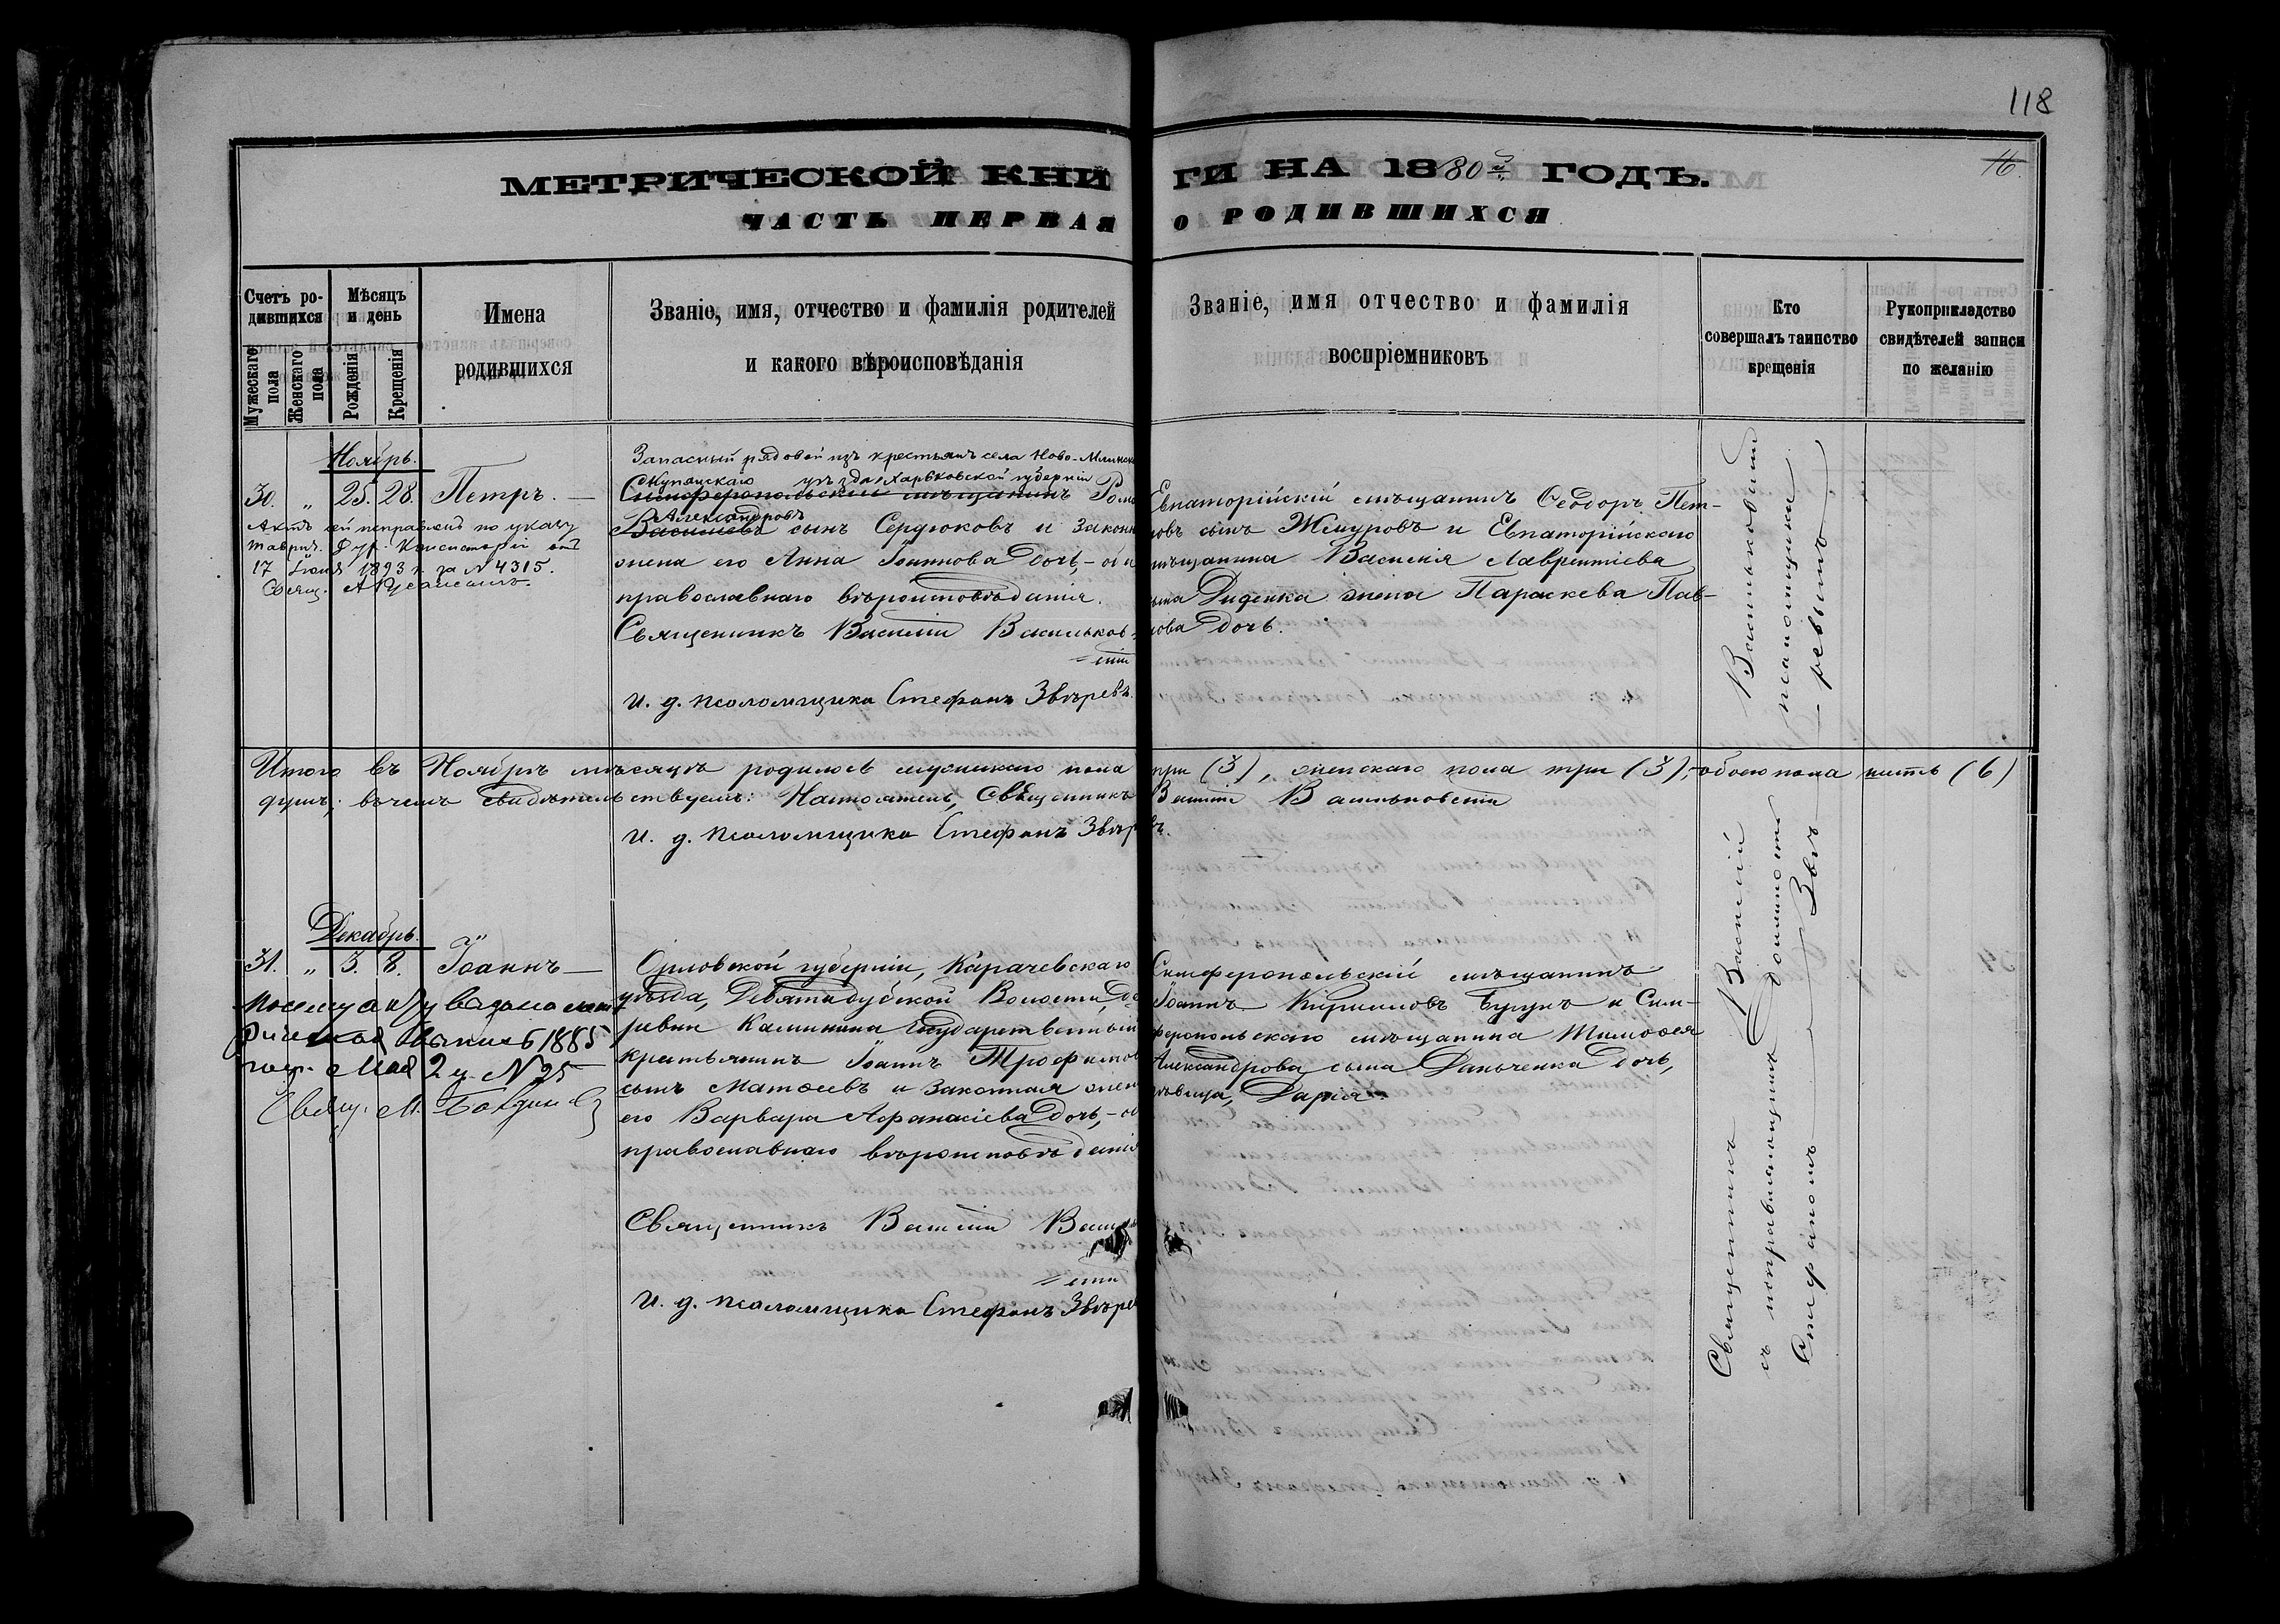 118
МЕТРИЧЕСКОЙ КНИГИ НА 1880й ГОДЪ.
16.
ЧАСТЬ ПЕРВАЯ О РОДИВШИХСЯ
Счетъ родившихся
Мужескаго пола
Женскаго пола
Мѣсяцъ и день
Рожденія
Крещенія
Имена
родившихся
Званіе, имя, отчество и фамилія родителей
и какого вѣроисповѣданія
Званіе, имя отчество и фамилія
воспріемниковъ
Кто
совершалъ таинство
крещенія
Рукоприкладство
свидѣтелей записи
по желанію
Ноябрь.
30. " 25. 28. Петръ. —
Актъ сей исправленъ по указу
Таврич. Дух. Консисторіи отъ
17 Іюня 1893 г. за № 4315.
Свящ. А.
Запасный рядовой изъ крестьянъ села Ново-Млинска
Купянскаго уѣзда Харьковской губерніи
Симферопольскій мѣщанинъ Рома
Александровъ
Васильевъ сынъ Сердюковъ и законн
жена его Анна Іоаннова дочь,– оба
православнаго вѣроисповѣданія.
Священникъ Василій Васильков-
=скій
и. д. псаломщика Стефанъ Звѣревъ.
Евпаторійскій мѣщанинъ Ѳеодоръ Пет-
ровъ сынъ Жемуровъ и Евпаторійскаго
мѣщанина Василія Лаврентіева
сына Диденка жена Параскева Пав-
лова дочь.
Итого въ Ноябрѣ мѣсяцѣ родилось мужскаго пола три (3), женскаго пола три (3),– обоего пола шесть (6)
душъ; въ чемъ свидѣтельствуемъ: Настоятель, Священникъ Василій Васильковскій
и. д. псаломщика Стефанъ Звѣревъ.
Декабрь.
31. " 3. 8. Іоаннъ —
По сему акту выдана мет
рическая выпись 1885
году Мая 2 д. № 95
Свящ. М.
Орловской губерніи, Карачевскаго
уѣзда, Девятидубской Волости, де
ревни Калинина государственный
крестьянинъ Іоаннъ Трофимов
сынъ Матѳеевъ и законная жен
его Варвара Аѳанасіева дочь,– об
православнаго вѣроисповѣданія
Священникъ Василій Васильков
=скій
и. д. псаломщика Стефанъ Звѣрев
Симферопольскій мѣщанинъ
Іоаннъ Кирилловъ Бугунъ и Сим-
феропольскаго мѣщанина Тимоѳея
Александрова сына Данченка дочь,
дѣвица, Дарія.
Священникъ Василій Васильковскій
съ исправляющимъ должность псаломщика
Стефаномъ Звѣревымъ